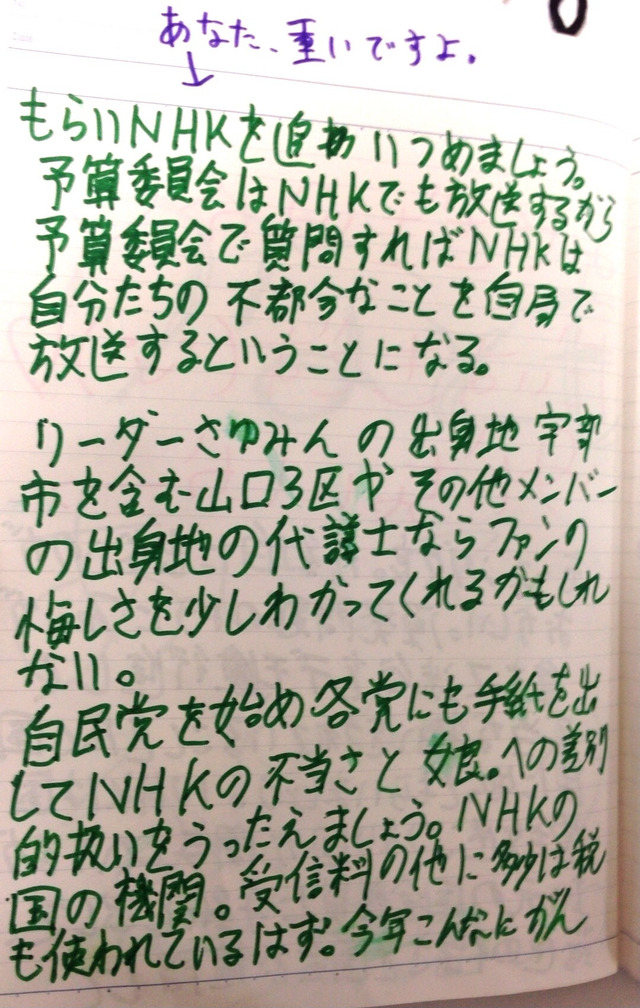 あなた、重いですよ。
↓
もらいNHKを追いつめましょう。
予算委員会はNHKでも放送するから
予算委員会で質問すればNHKは
自分たちの不都合なことを自局で
放送するということになる。
リーダーさゆみんの出身地宇部
市を含む山口3区やその他メンバー
の出身地の代議士ならファンの
悔しさを少しわかってくれるかもしれ
ない。
自民党を始め各党にも手紙を出
してNHKの不当さと娘。への差別
的扱いをうったえましょう。NHKの
国の機関。受信料の他に多少は税
も使われているはず。今年こんなにがん